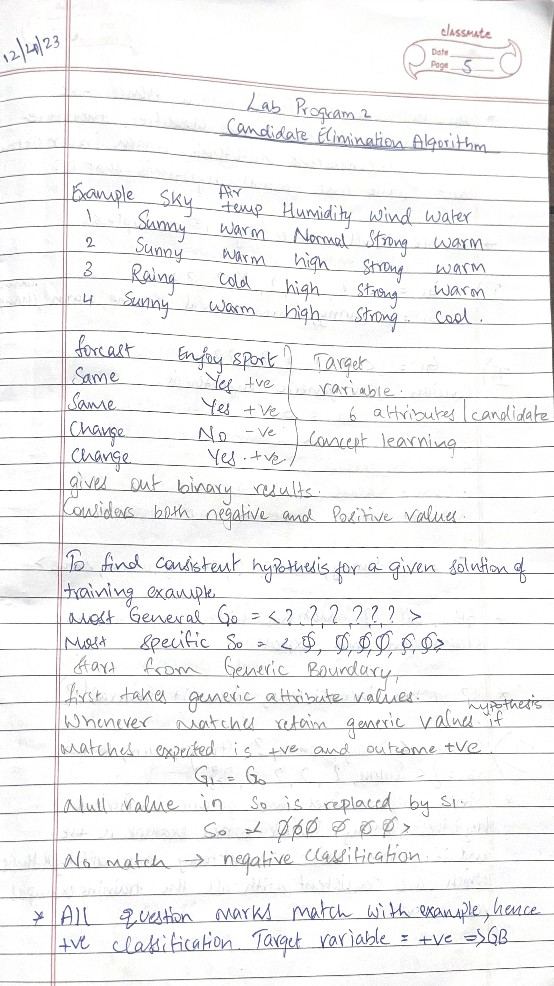 12/4/23
classmate
Date
Page 5
Lab Program 2
Candidate Elimination Algorithm
Example Sky Air temp Humidity Wind Water
1 Sunny warm Normal Strong warm
2 Sunny warm high strong warm
3 Rainy cold high strong warm
4 Sunny warm high strong cool.
forcast Enjoy Sport Target
Same Yes +ve variable.
Same Yes +ve 6 attributes/candidate
Change No -ve Concept learning
Change Yes. +ve
gives out binary results.
Considers both negative and Positive values.
To find consistent hypothesis for a given solution of
training example
Most General G0 = <?, ?, ?, ?, ?, ?>
Most specific S0 = <φ, φ, φ, φ, φ, φ>
Start from Generic Boundary,
first takes generic attribute values.
Whenever matches retain generic values. if hypothesis
matches expected is +ve and outcome +ve
G1 = G0
Null value in S0 is replaced by S1.
S0 = < φ φ φ φ φ φ>
No match → negative classification.
* All question marks match with example, hence
+ve classification. Target variable = +ve => GB